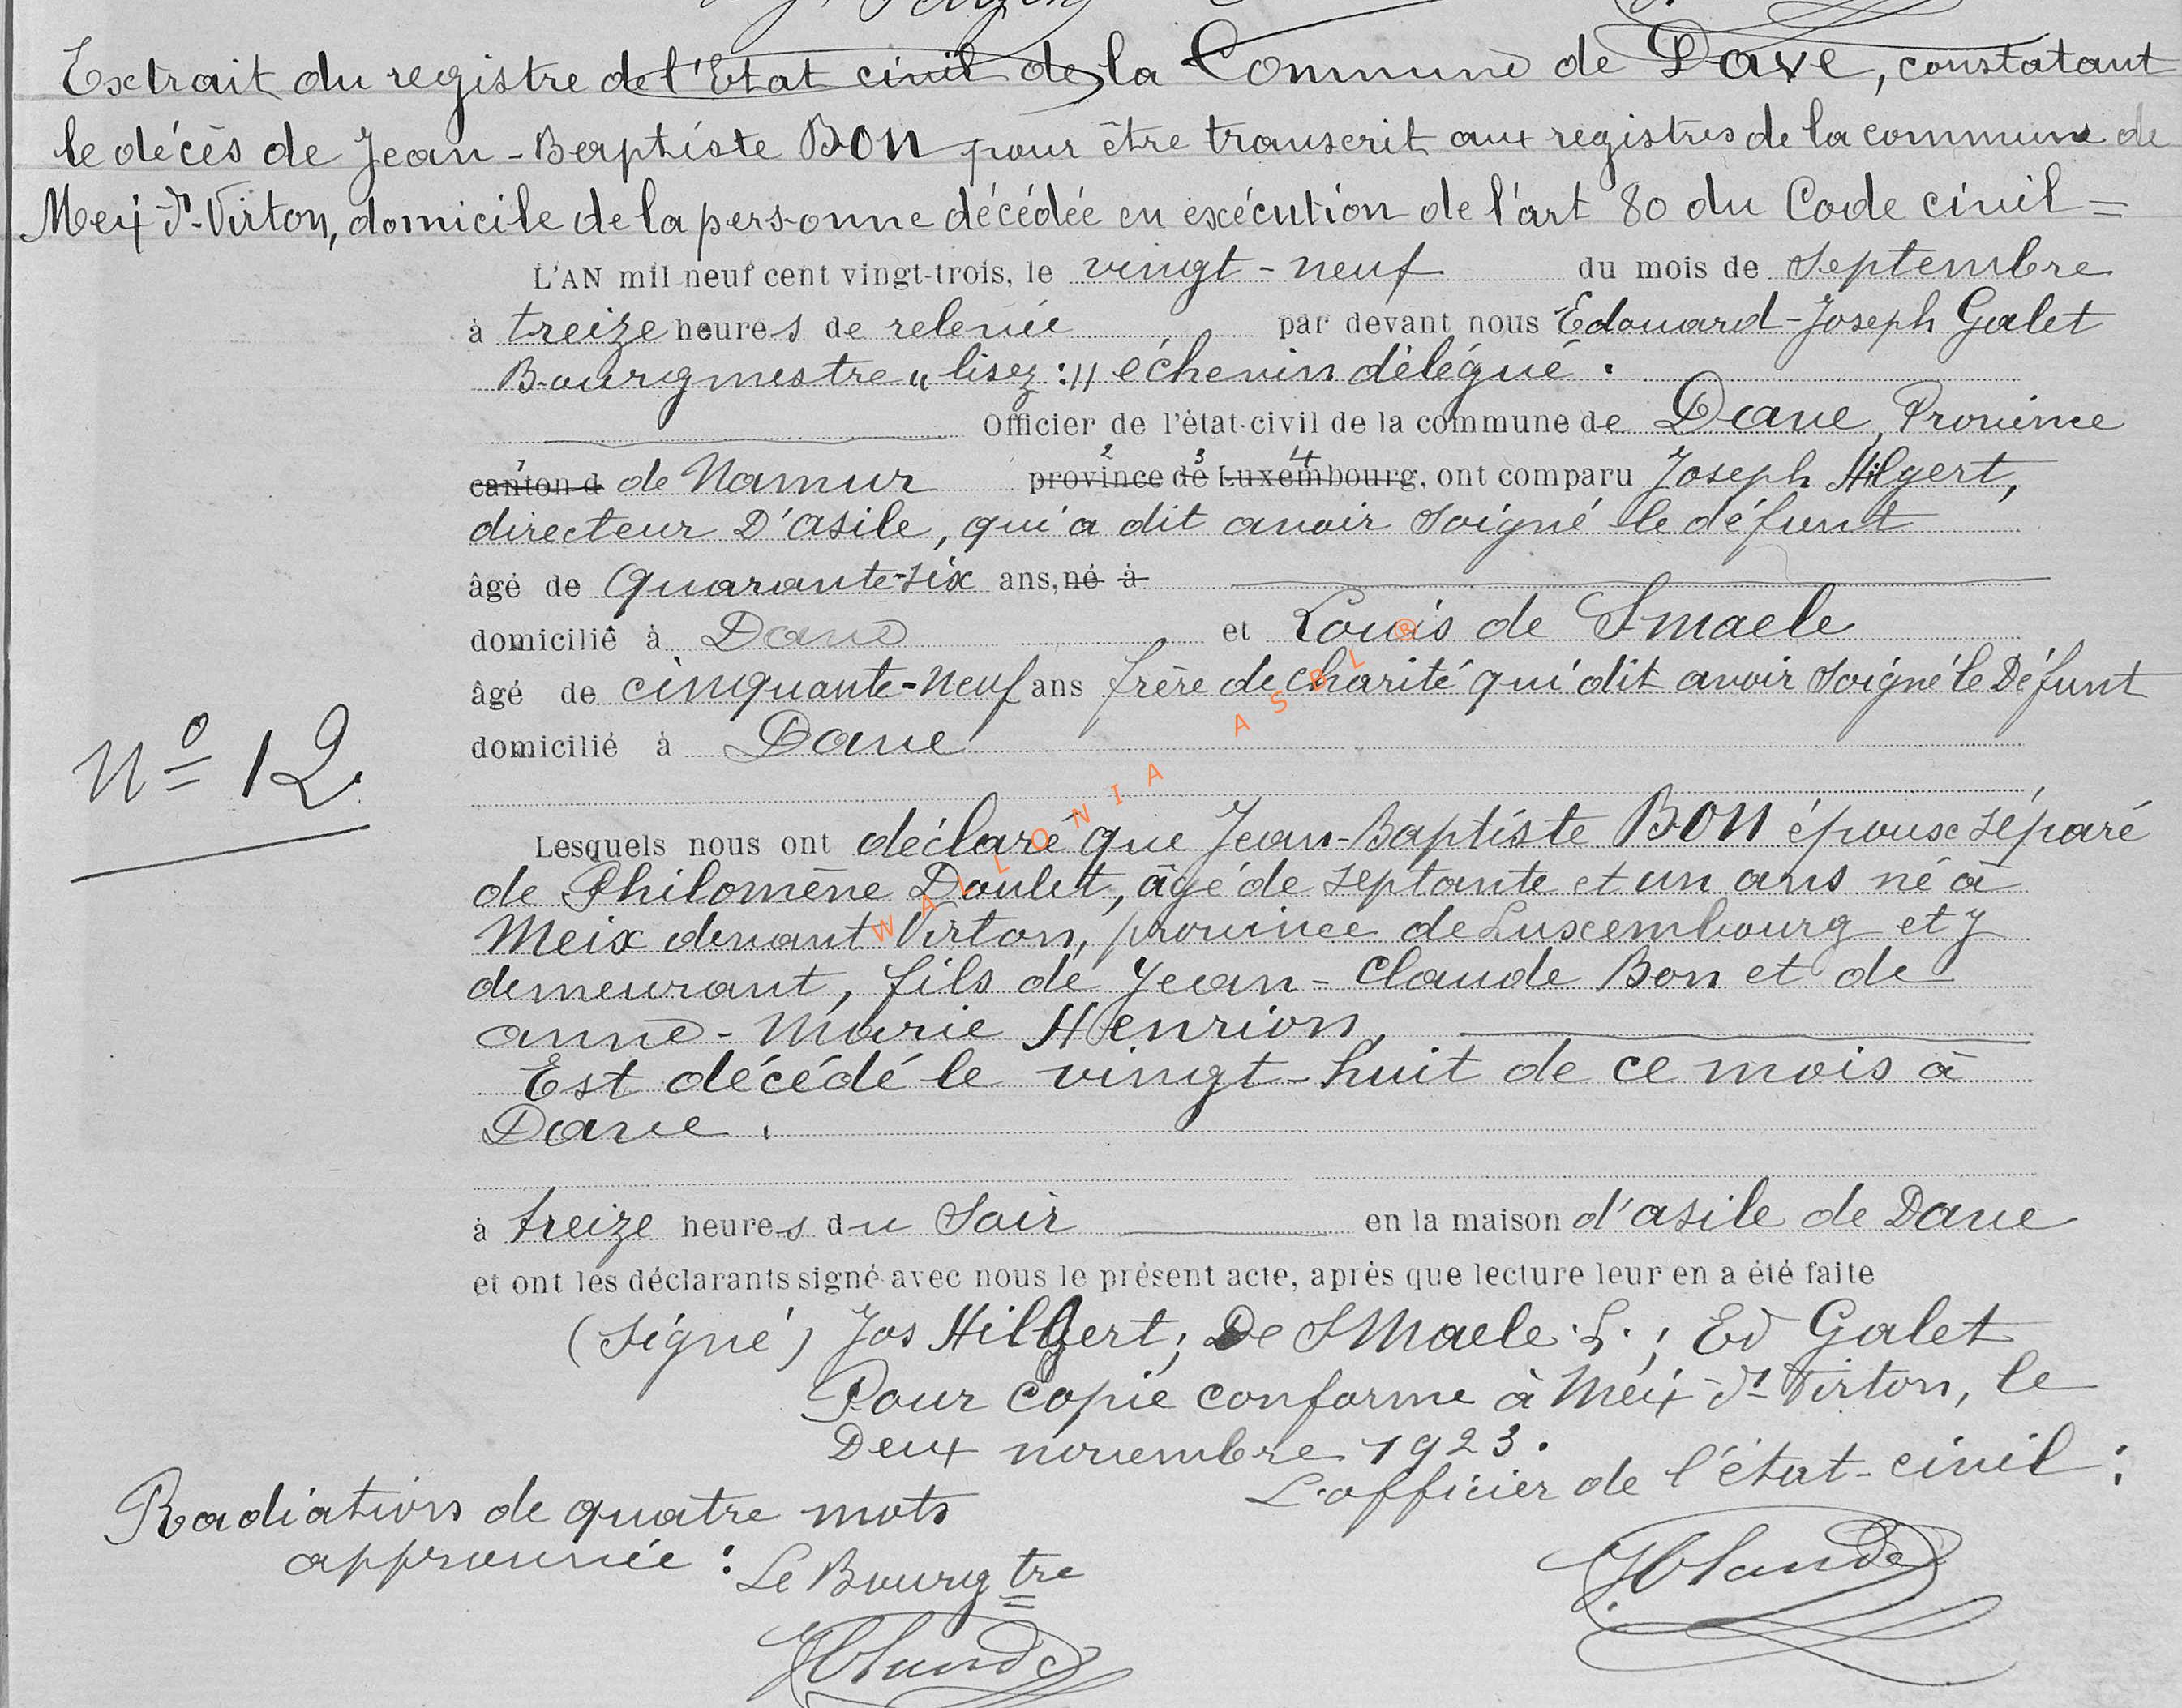 Extrait du registre de l'Etat civil de la Commune de Dave, constatant
le décès de Jean-Baptiste BON pour être transcrit aux registres de la commune de
Meix-dt-Virton, domicile de la personne décédée en exécution de l'art 80 du Code civil =
L'AN mil neuf cent vingt-trois, le vingt-neuf du mois de Septembre
à treize heures de relevée par devant nous Edouard-Joseph Galet
Bourgmestre „ lisez : „ échevin délégué .
Officier de l'état-civil de la commune de Dave, Province
canton d de Namur province de Luxembourg, ont comparu Joseph Hilgert,
directeur D'asile, qui a dit avoir soigné le défunt
âgé de quarante-six ans, né à
domicilié à Dave et Louis de Smaele
âgé de cinquante-neuf ans frère de charité qui dit avoir soigné le Défunt
domicilié à Dave
N° 12.
Lesquels nous ont déclaré que Jean-Baptiste BON épouse séparé
de Philomène Doulet, âgé de septante et un ans né à
Meix devant Virton, province de Luxembourg et y
demeurant, fils de Jean-Claude Bon et de
anne-Marie Henrion,
Est décédé le vingt-huit de ce mois à
Dave.
à treize heures du soir en la maison d'asile de Dave
et ont les déclarants signé avec nous le présent acte, après que lecture leur en a été faite
(signé) Jos Hilgert ; De Smaele L. ; Ed Galet
Pour copie conforme à Meix-dt-Virton, le
Deux novembre 1923.
L'officier de l'état-civil :
Radiations de quatre mots
approuvée : Le Bourgtre
WALLONIA ASBL ®